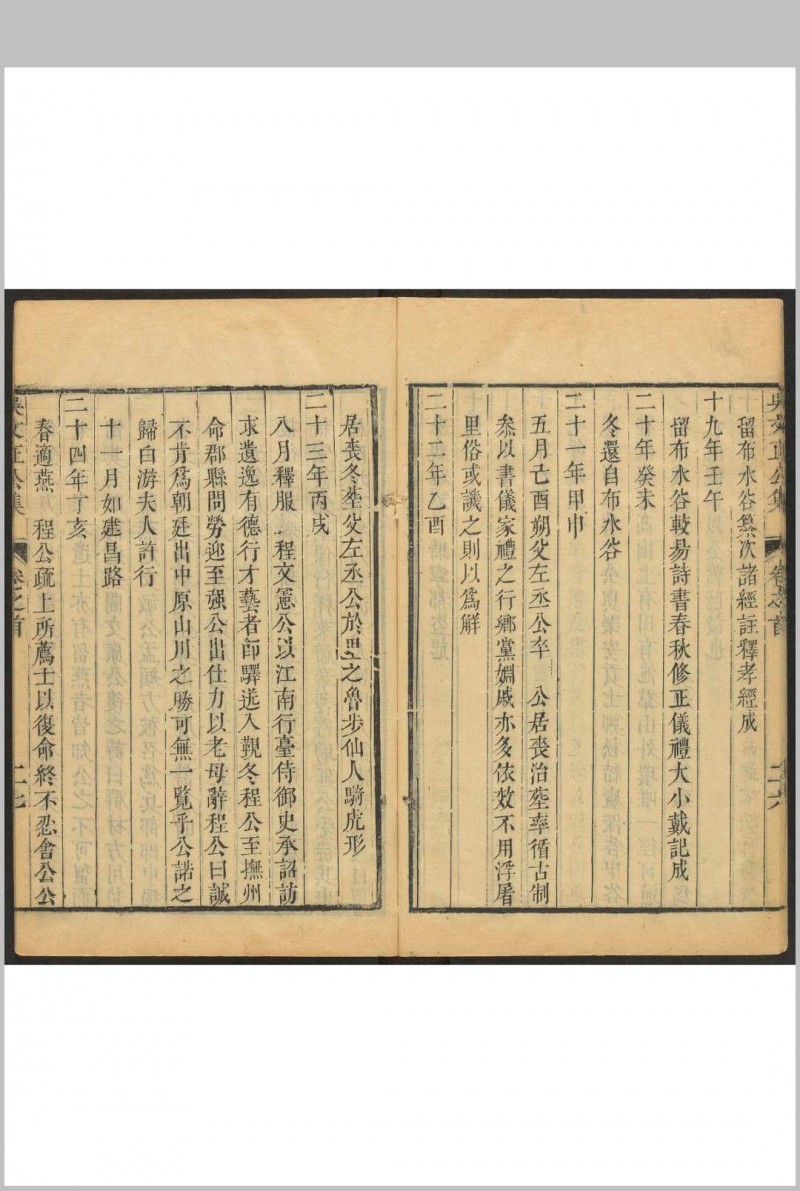 留布水谷纂次諸經註釋孝經成
十九年壬午
留布水谷較易詩書春秋修正儀禮大小戴記成
二十年癸未
冬還自布水谷
二十一年甲申
五月己酉朔父左丞公卒 公居喪治塟率循古制
叅以書儀家禮之行鄉黨婣戚亦多依效不用浮屠
里俗或譏之則以爲解
二十二年乙酉
居喪冬塟父左丞公於里之魯步仙人騎虎形
二十三年丙戌
八月釋服 程文憲公以江南行臺侍御史承詔訪
求遺逸有德行才藝者即驛送入覲冬程公至撫州
命郡縣問勞迎至强公出仕力以老母辭程公曰誠
不肯爲朝廷出中原山川之勝可無一覽乎公諾之
歸白游夫人許行
十一月如建昌路
二十四年丁亥
春適燕 程公疏上所薦士以復命終不忍舍公公
吳文正公集
卷之首
二十六
吳文正公集
卷之首
二十七